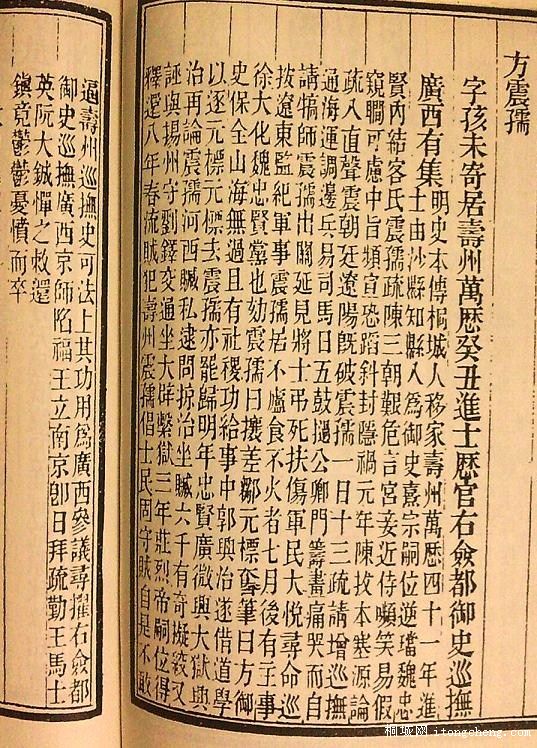 方震孺
字孩未寄居壽州萬歷癸丑進士歷官右僉都御史巡撫
廣西有集
明史本傳桐城人移家壽州萬歷四十一年進
士由沙縣知縣入為御史熹宗嗣位逆璫魏忠
賢內結客氏震孺疏陳三朝艱危言宮妾近侍嚬笑易假
窺瞷可慮中旨頻宣恐蹈斜封隱禍元年陳拔本塞源論
疏入直聲震朝廷遼陽既破震孺一日十三疏請增巡撫
通海運調邊兵易司馬日五鼓撾公卿門籌畫痛哭而自
請犒師震孺出關延見將士弔死扶傷軍民大悅尋命巡
按遼東監紀軍事震孺居不廬食不火者七月後有主事
徐大化魏忠賢黨也劾震孺曰攘差鄒元標奪筆曰方御
史保全山海無過且有社稷功給事中郭興治遂借道學
以逐元標元標去震孺亦罷歸明年忠賢廣微興大獄興
治再論震孺河西贓私逮問掠治坐贓六千有奇擬絞又
誣與揚州守劉鐸交通坐大辟繫獄三年莊烈帝嗣位得
釋還八年春流賊犯壽州震孺倡士民固守賊自是不敢
逼壽州巡撫史可法上其功用為廣西參議尋擢右僉都
御史巡撫廣西京師陷福王立南京即日拜疏勤王馬士
英阮大鋮憚之敕還
鎮竟鬱鬱憂憤而卒
桐城网 itongcheng.com